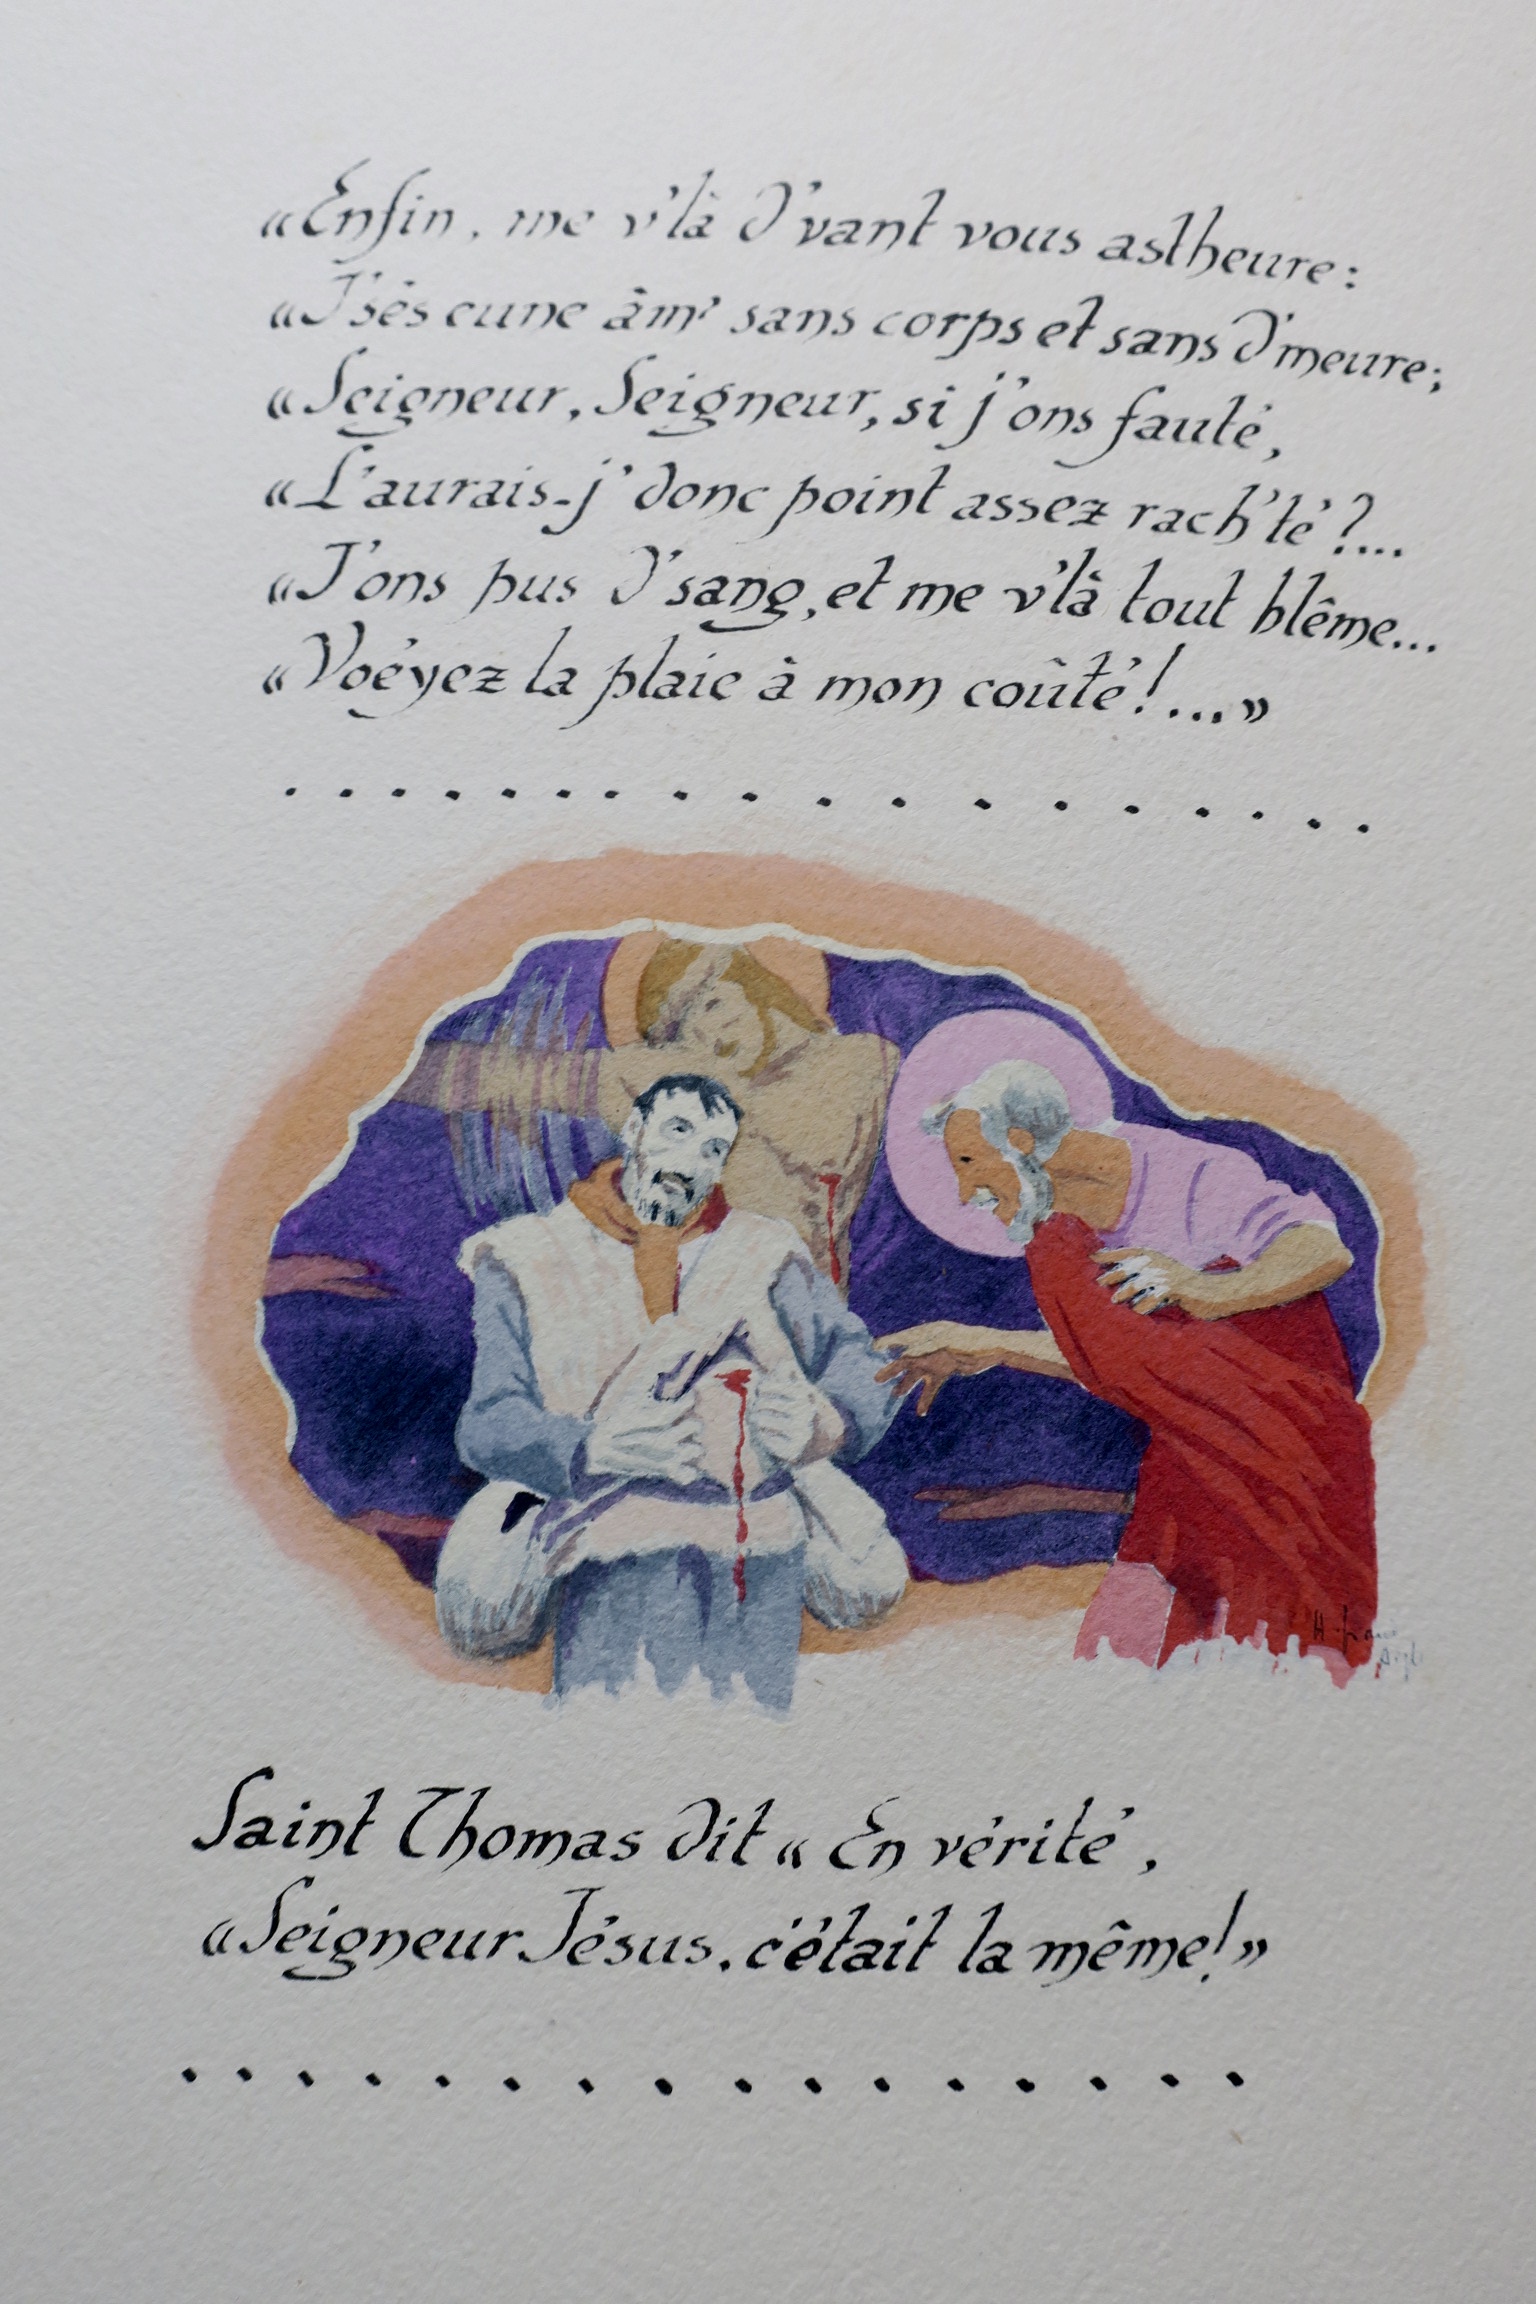 «Enfin, me v'là d'vant vous astheure:
«J'sés eune âm' sans corps et sans d'meure;
«Seigneur, Seigneur, si j'ons fauté,
«L'aurais-j' donc point assez rach'té?...
«J'ons pus d'sang, et me v'là tout blême...
«Voéyez la plaie à mon coûté!...»
. . . . . . . . . . . . . . . . .
Saint Thomas dit «En vérité,
«Seigneur Jésus, c'était la même!»
. . . . . . . . . . . . . . . .